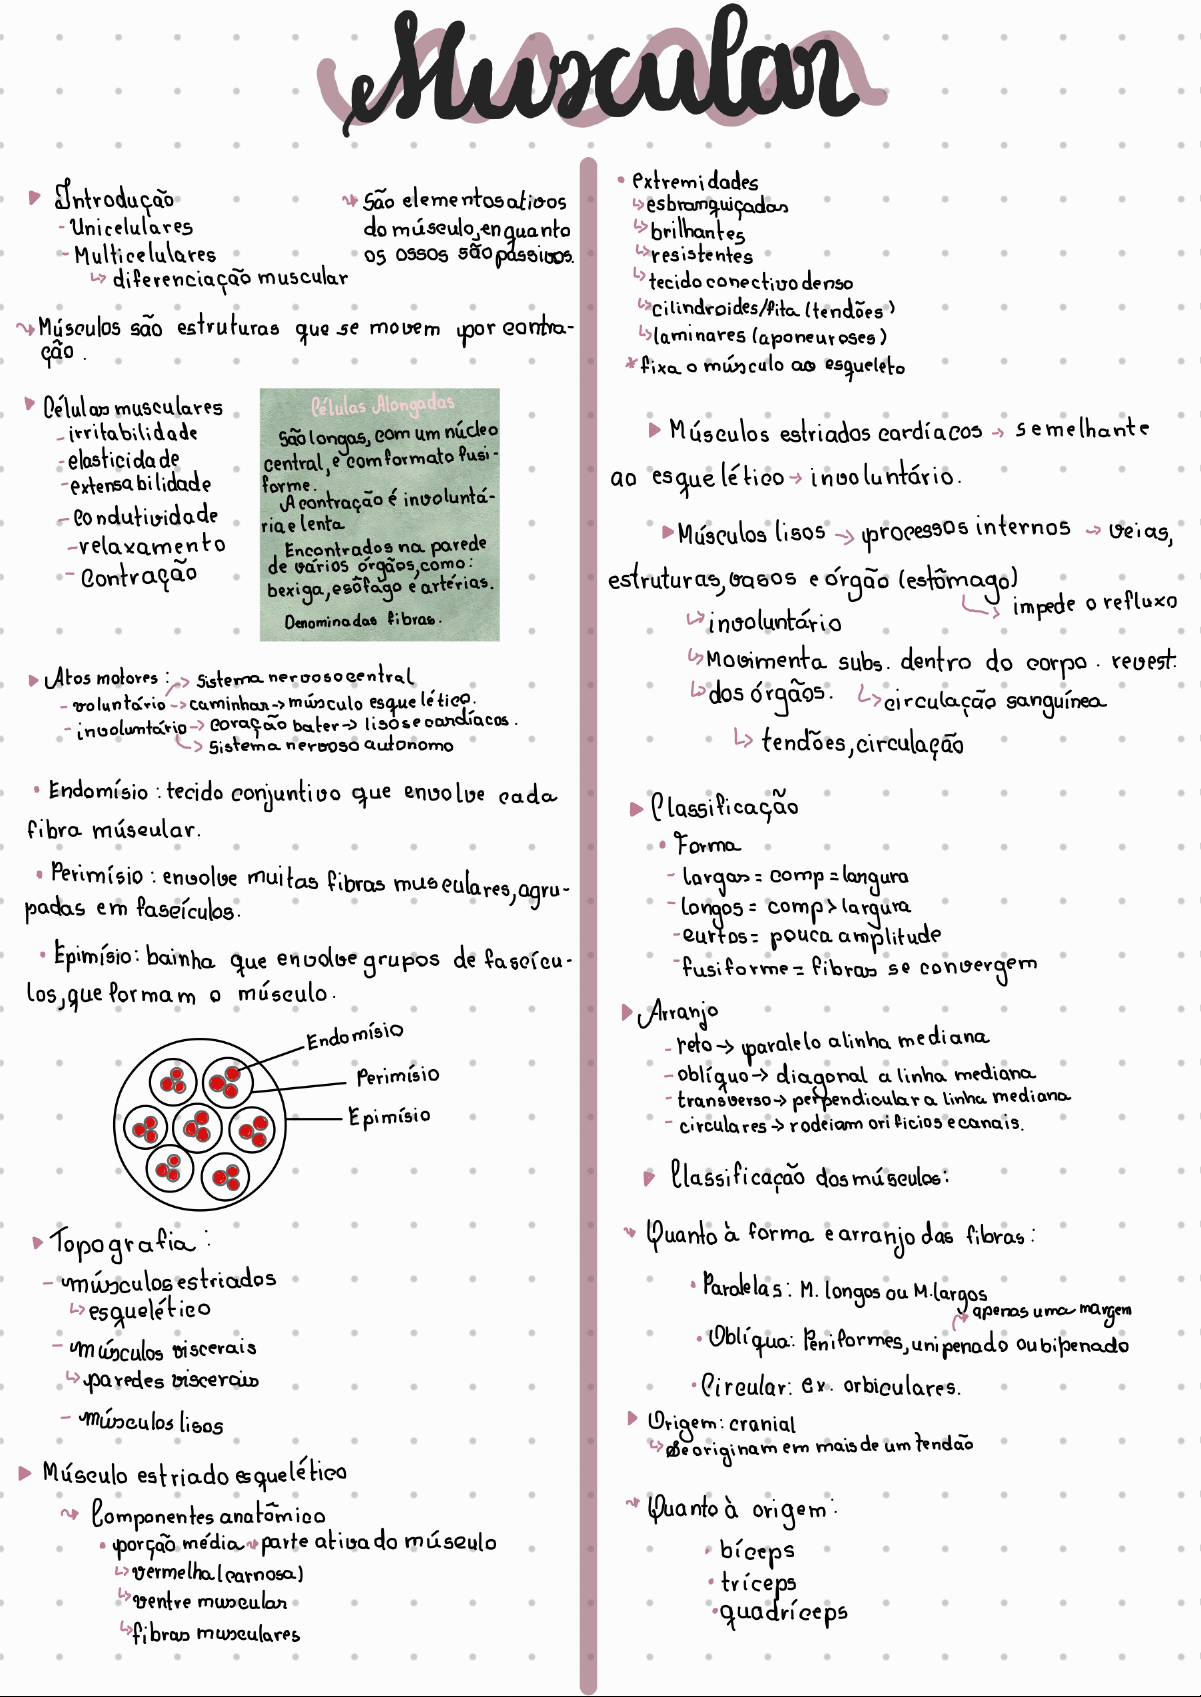 Muscular
▸ Introdução
- Unicelulares
- Multicelulares
↳ diferenciação muscular
↝ São elementos ativos
do músculo, enquanto
os ossos são passivos.
↝ Músculos são estruturas que se movem por contra-
ção.
▸ Células musculares
- irritabilidade
- elasticidade
- extensabilidade
- condutividade
- relaxamento
- Contração
Células Alongadas
São longas, com um núcleo
central, e com formato fusi-
forme.
A contração é involuntá-
ria e lenta
Encontrados na parede
de vários órgãos, como:
bexiga, esôfago e artérias.
Denominadas fibras.
▸ Atos motores: → Sistema nervoso central
- voluntário → caminhar → músculo esquelético.
- involuntário → coração bater → lisos e cardíacos.
↳ Sistema nervoso autonomo
• Endomísio: tecido conjuntivo que envolve cada
fibra múscular.
• Perimísio: envolve muitas fibras musculares, agru-
padas em fascículos.
• Epimísio: bainha que envolve grupos de fascícu-
los, que formam o músculo.
Endomísio
Perimísio
Epimísio
▸ Topografia:
- músculos estriados
↳ esquelético
- músculos viscerais
↳ paredes viscerais
- músculos lisos
▸ Músculo estriado esquelético
↝ Componentes anatômico
• porção média ↝ parte ativa do músculo
↳ vermelha (carnosa)
↳ ventre muscular
↳ fibras musculares
• extremidades
↳ esbranquiçadas
↳ brilhantes
↳ resistentes
↳ tecido conectivo denso
↳ cilindroides/fita (tendões)
↳ laminares (aponeuroses)
* fixa o músculo ao esqueleto
▸ Músculos estriados cardíacos → semelhante
ao esquelético → involuntário.
▸ Músculos lisos → processos internos → veias,
estruturas, vasos e órgão (estômago)
↳ impede o refluxo
↳ involuntário
↳ Movimenta subs. dentro do corpo. revest.
↳ dos órgãos. ↳ circulação sanguínea
↳ tendões, circulação
▸ Classificação
• Forma
- largos = comp = largura
- longos = comp > largura
- curtos = pouca amplitude
- fusiforme = fibras se convergem
▸ Arranjo
- reto → paralelo a linha mediana
- oblíquo → diagonal a linha mediana
- transverso → perpendicular a linha mediana
- circulares → rodeiam orificios e canais.
▸ Classificação dos músculos:
↝ Quanto à forma e arranjo das fibras:
• Paralelas: M. longos ou M. largos
↱ apenas uma margem
• Oblíqua: Peniformes, unipenado ou bipenado
• Circular: ex. orbiculares.
▸ Origem: cranial
↳ Se originam em mais de um tendão
↝ Quanto à origem:
• bíceps
• tríceps
• quadríceps